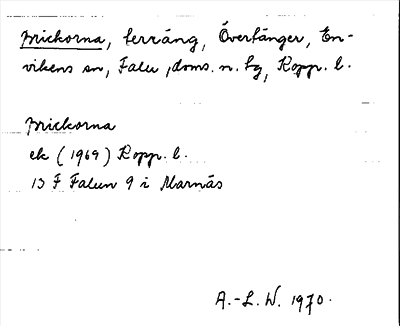 Brickorna, terräng, Övertänger, En-
vikens sn, Falu doms. n. tg, Kopp. l.
Brickorna
ek (1969) Kopp. l.
13 F Falun 9 i Marnäs
A.-L. W. 1970.